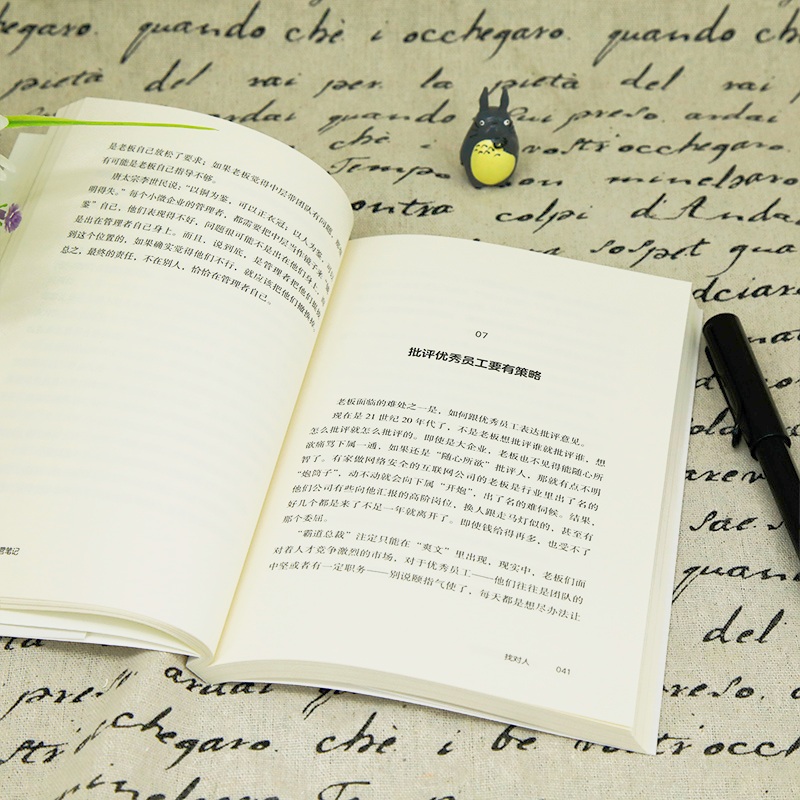 是老板自己放松了要求；如果老板觉得中层带团队有问题，那
有可能是老板自己指导不够。
唐太宗李世民说：“以铜为鉴，可以正衣冠；以人为鉴，可以
明得失。”每个小微企业的管理者，都需要把中层当作镜子来
鉴”自己，他们表现得不好，问题很可能不是出在他们身上，
是出在管理者自己身上。而且，说到底，是管理者把他们提拔
到这个位置的，如果确实觉得他们不行，就应该把他们撤换掉。
总之，最终的责任，不在别人，恰恰在管理者自己。
营笔记
07
批评优秀员工要有策略
老板面临的难处之一是，如何跟优秀员工表达批评意见。
现在是 21 世纪 20 年代了，不是老板想批评谁就批评谁，想
怎么批评就怎么批评的。即使是大企业，老板也不见得能随心所
欲痛骂下属一通，如果还是“随心所欲”批评人，那就有点不明
智了。有家做网络安全的互联网公司的老板是行业里出了名的
“炮筒子”，动不动就会向下属“开炮”，出了名的难伺候。结果，
他们公司有些向他汇报的高阶岗位，换人跟走马灯似的，甚至有
好几个都是来了不足一年就离开了。即使钱给得再多，也受不了
那个委屈。
“霸道总裁”注定只能在“爽文”里出现，现实中，老板们面
对着人才竞争激烈的市场，对于优秀员工——他们往往是团队的
中坚或者有一定职务——别说颐指气使了，每天都是想尽办法让
找对人 041
chegaro. quando chè i occhegaro. quando ch
pietà del rai per la pietà del rai
ardai quando preso. ardai
chè i vostrocchegaro
Tempo non
ontra colpi d'Anda
sospet qua
dciare
quan
del
pre ardai preso.
chegaro chè i be vostrocch